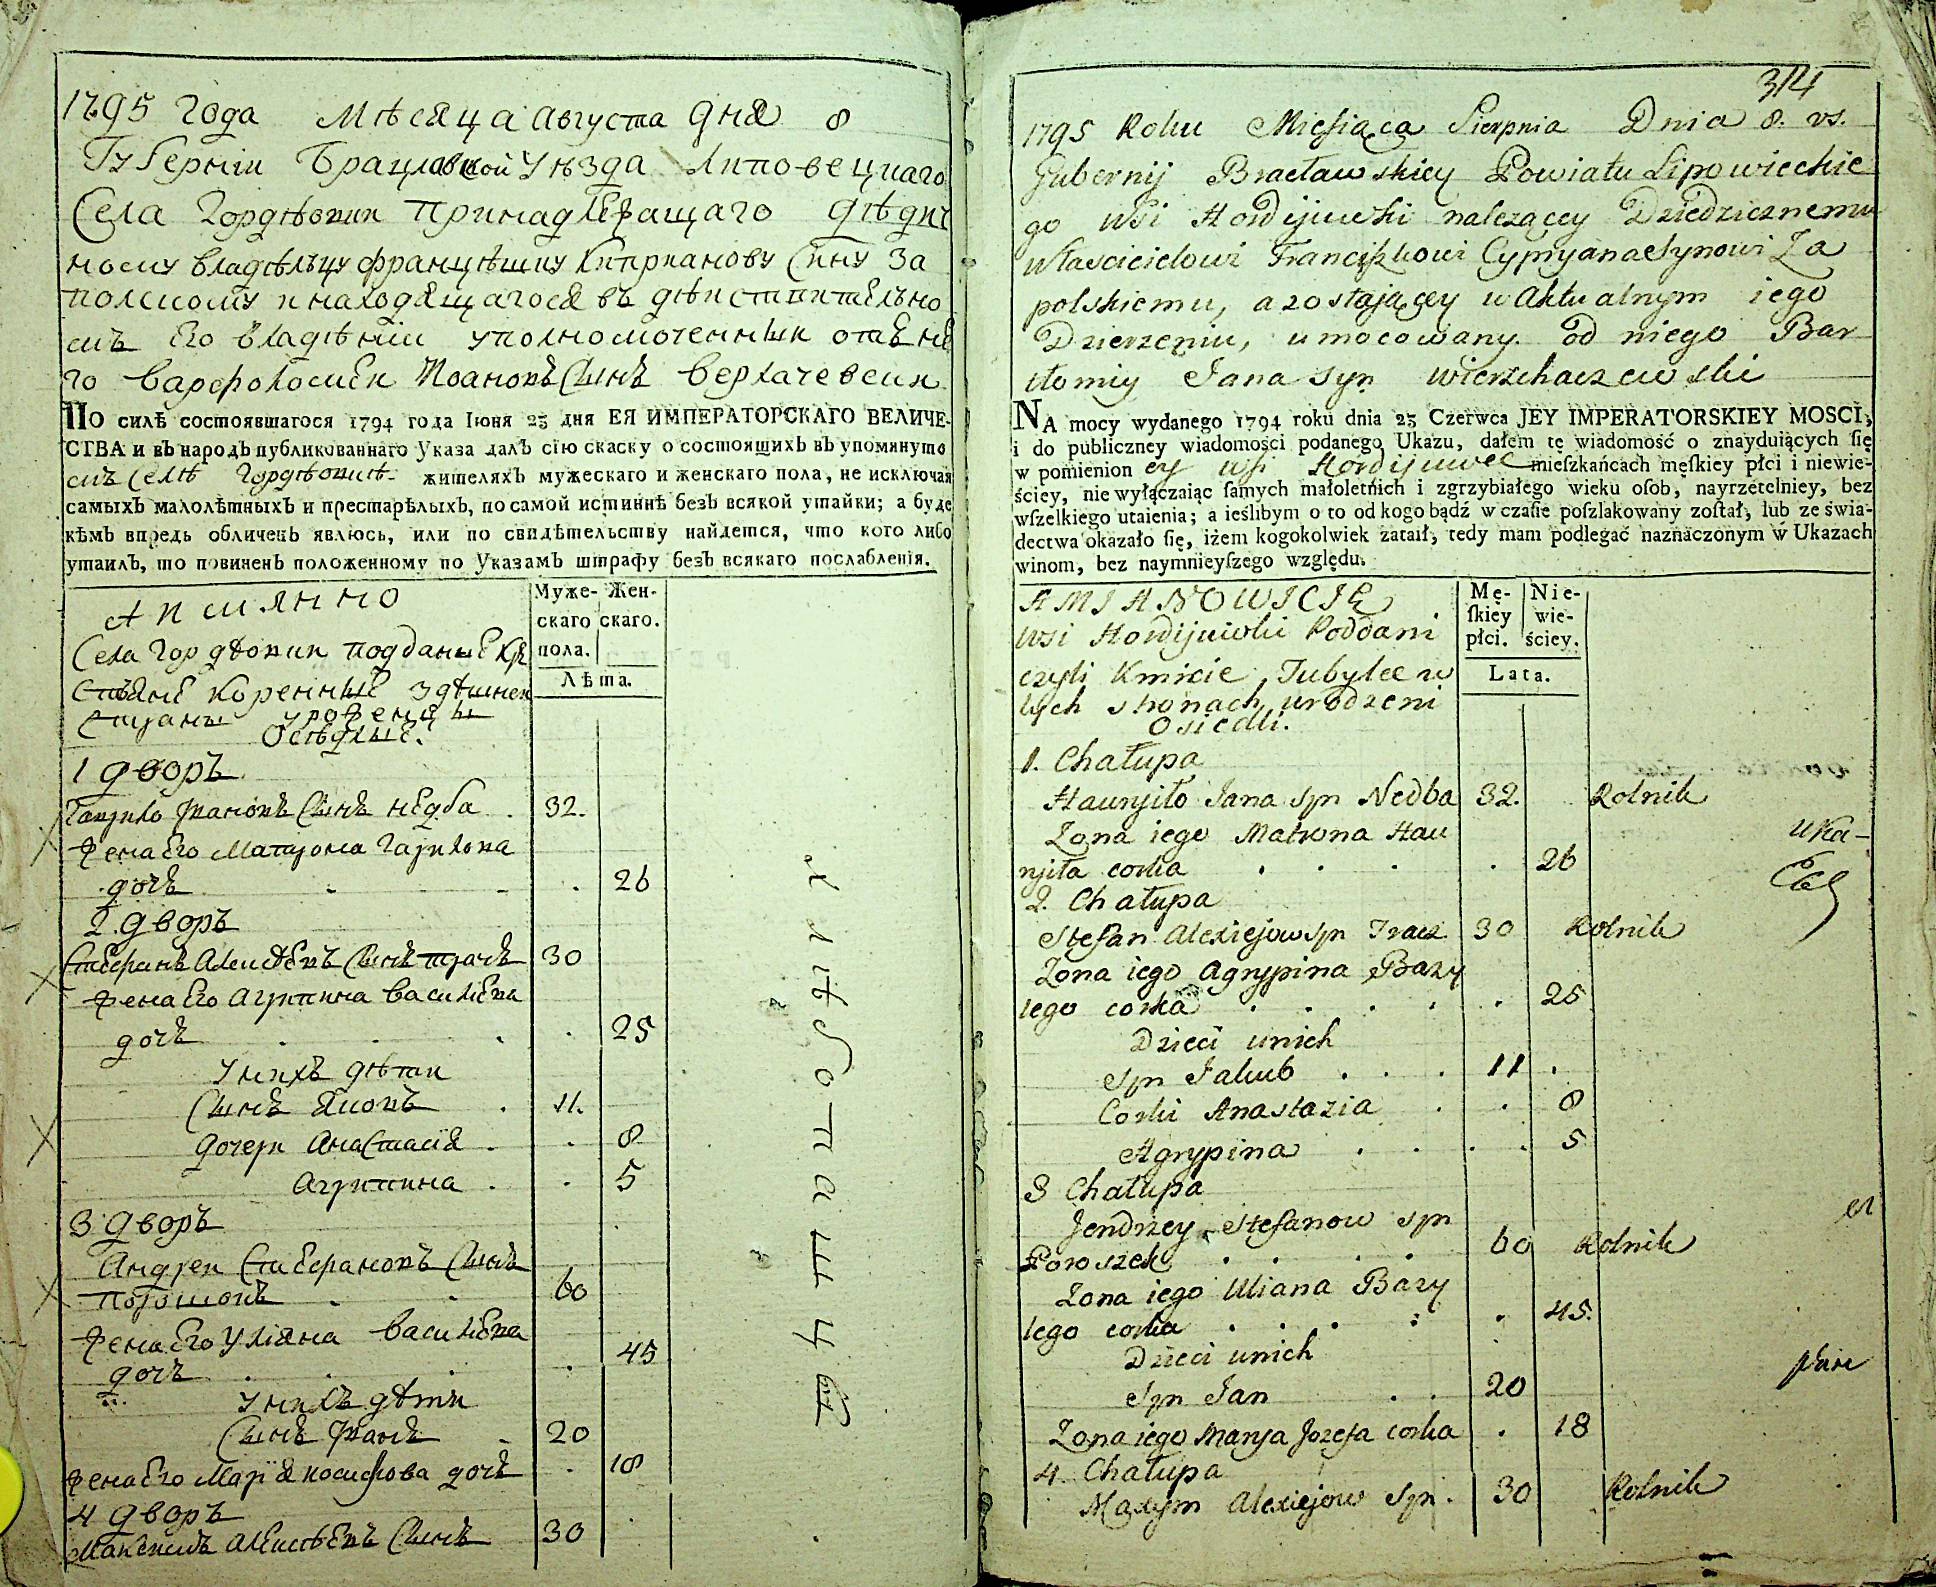 1795 Года Мѣсяца Августа Дня 8
Губерніи Брацлавской Уѣзда Липовецкаго
Села Гордѣовки принадлежащаго дѣдич
ному владѣльцу францѣшку Киприанову Сину За
полскому и находящагося въ дѣйствителъно
мъ Его владѣніи уполномоченный отъ не
го варфоломей Иоановъ Сынъ верхачевски
ПО силѣ состоявшагося 1794 года Іюня 23 дня ЕЯ ИМПЕРАТОРСКАГО ВЕЛИЧЕ-
СТВА и въ народъ публикованнаго Указа далъ сію скаску о состоящихъ въ упомянуто
мъ Селѣ Гордѣовкѣ жителяхъ мужескаго и женскаго пола, не исключая
самыхъ малолѣтныхъ и престарѣлыхъ, по самой истиннѣ безъ всякой утайки; а буде
кѣмъ впредь обличенъ явлюсь, или по свидѣтельству найдется, что кого либо
утаилъ, то повиненъ положенному по Указамъ штрафу безъ всякаго послабленія.
А имянно
Муже- Жен-
скаго скаго.
пола.
Лѣта.
Села Гордѣовки подданые Кре
стьяне коренные здѣшнеи
страны уроженцы
Осѣдлые.
1 дворъ
Гаврило Івановъ Сынъ недба . 32.
жена Его Матрона Гаврилова
дочъ . 26
2. дворъ
Стефанъ Алексѣевъ Сынъ ткачъ 30
жена Его Агрипина Василева
дочъ . 25
У нихъ дѣти
Сынъ Яковъ . 11.
дочери Анастасія . 8
Агрипина . 5
3 дворъ
Андреи Стефановъ Сынъ
Порошокъ . 60
жена Его Уліяна Василева
дочъ . 45
У нихъ дѣти
Сынъ Іванъ 20
жена Его Марія иосифова дочъ 18
4 дворъ
Максимъ Алексѣевъ Сынъ 30
хлѣбопашцы
314
1795 Roku Miesiąca Sierpnia Dnia 8. vs.
Gubernij Bracławskiey Powiatu Lipowieckie
go Wsi Hordijuwki należącey Dziedzicznemu
właścicielowi Franciszkowi Cypryana Synowi Za
polskiemu, a zostającey w Aktualnym iego
Dzierzeniu, umocowany od niego Bar
tłomiy Jana Syn wierzchaczewski
NA mocy wydanego 1794 roku dnia 23 Czerwca JEY IMPERATORSKIEY MOSCI,
i do publiczney wiadomości podanego Ukazu, dałem tę wiadomość o znayduiących ſię
w pomienion ey wsi Hordijuwce mieſzkańcach męſkiey płci i niewie-
ściey, nie wyłączaiąc ſamych małoletnich i zgrzybiałego wieku oſob, nayrzetelniey, bez
wſzelkiego utaienia; a ieślibym o to od kogo bądź w czaſie poſzlakowany zoſtał, lub ze świa-
dectwa okazało ſię, iżem kogokolwiek zataił, tedy mam podlegać naznaczonym w Ukazach
winom, bez naymnieyſzego względu.
AMIANOWICIE
Mę- Nie-
ſkiey wie-
płci. ściey.
Lata.
Wsi Hordijuwki Poddani
czyli Kmicie, Tubylce w
tych stronach urodzeni
Osiedli.
1. Chałupa
Hawryło Jana syn Nedba 32. Rolnik
Zona iego Matrona Haw
ryła corka . . . . 26
2. Chałupa
Stefan Alexiejow syn Tkacz 30 Rolnik
Zona iego Agrypina Bazy
lego corka . . . . 25
Dzieci unich
Syn Jakub . . . 11 .
Corki Anastazia . . 8
Agrypina . . . . 5
3 Chałupa
Jendrzey Stefanow syn
Poroszek . . . . 60 Rolnik
Zona iego Uliana Bazy
lego corka . . . . 45.
Dzieci unich
Syn Jan . . 20
Zona iego Marya Jozefa corka . 18
4. Chałupa
Maxym Alexiejow Syn. 30 Rolnik